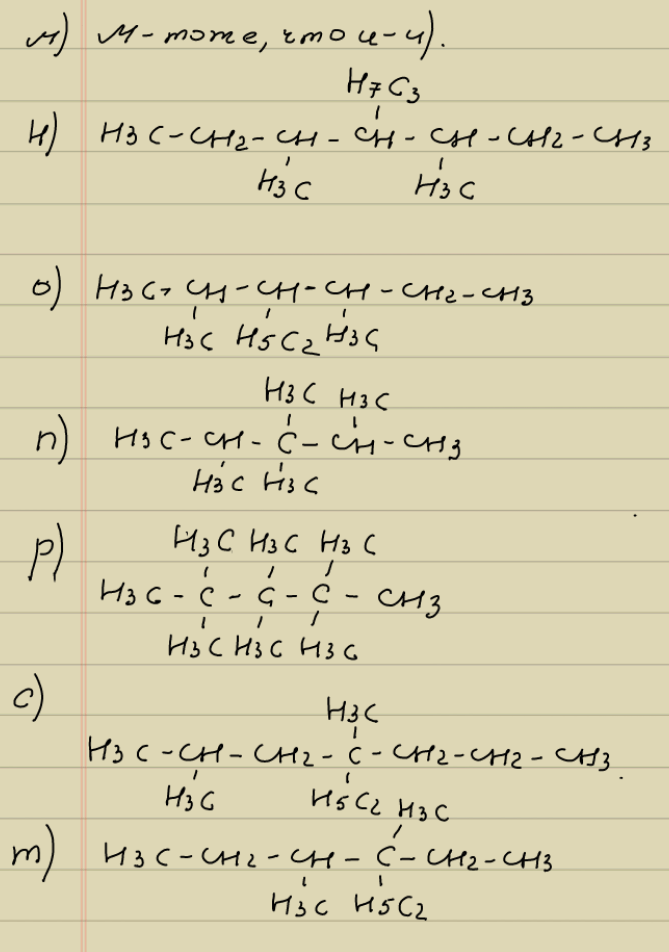 м) м-тоте, что и-и).
H7C3
Н) H3C-CH2-CH-CH-CH-CH2-CH3
H3C H3C
о) H3C-CH-CH-CH-CH2-CH3
H3C H5C2 H3C
H3C H3C
п) H3C-CH-C-CH-CH3
H3C H3C
H3C H3C H3C
р) H3C-C-C-C-CH3
H3C H3C H3C
с)
H3C
H3C-CH-CH2-C-CH2-CH2-CH3
H3C H5C2
H3C
т) H3C-CH2-CH-C-CH2-CH3
H3C H5C2